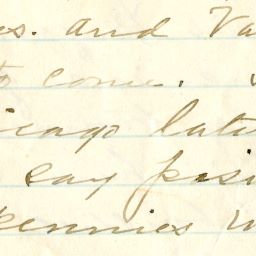 es. and Va
to come.
icago late
say posi
Pennies w